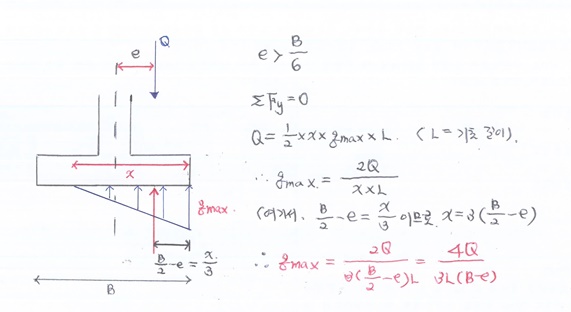 e
Q
x
qmax.
B/2 - e = x/3
B
e > B/6
ΣFy = 0
Q = 1/2 × x × qmax × L. (L = 기초 길이).
∴ qmax. = 2Q/(x×L)
(여기서, B/2 - e = x/3 이므로, x = 3(B/2 - e)
∴ qmax = 2Q/(3(B/2 - e)L) = 4Q/(3L(B-e))